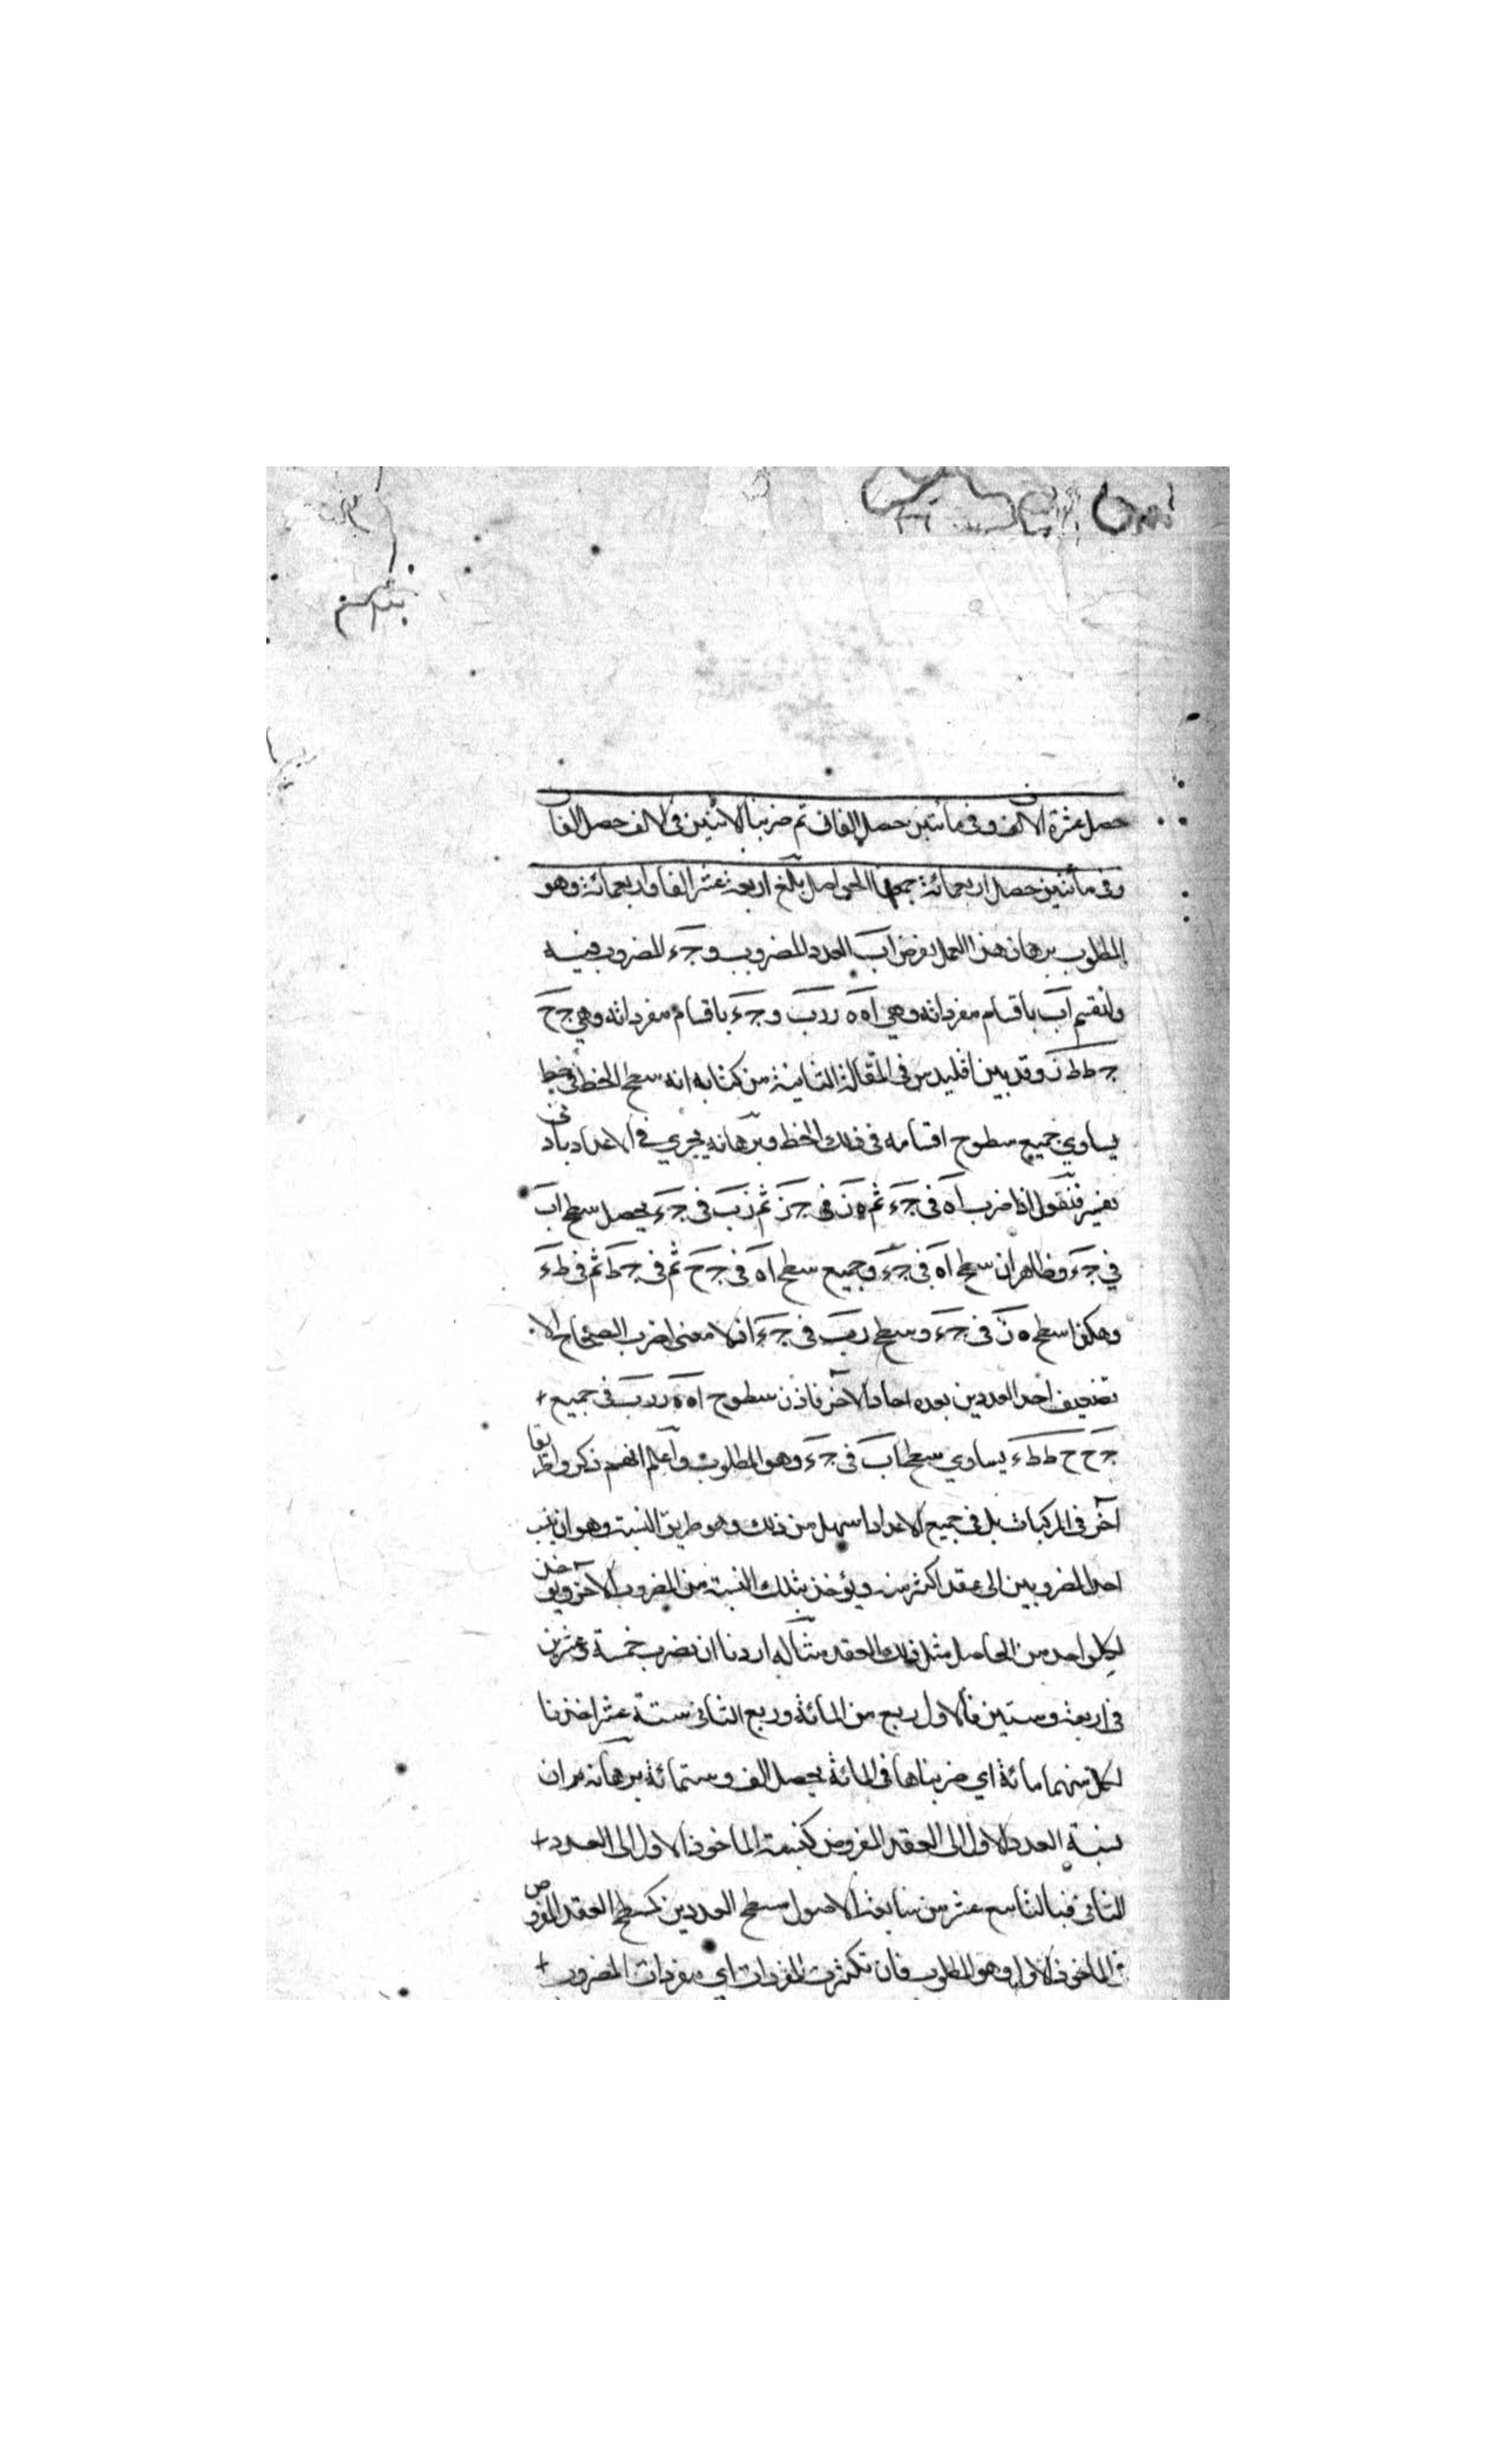 حصل عشرة آلاف وفى مأتين حصل الفان ثم ضربنا الاثنين فى الالف حصل الفان
وفى مأتين حصل اربعمائة جمعنا الحواصل بلغ اربعة عشر الفا واربعمائة وهو
المطلوب برهان هذا العمل نفرض اب العدد المضروب و جء المضروب فيه
ولنقسم اب باقسام مفرداته وهى اه ه ر رب و جء باقسام مفرداته وهى جح
وقد بين اقليدس فى المقالة الثانية من كتابه انه سطح الخط فى خط
يساوي جميع سطوح اقسامه فى ذلك الخط وبرهانه يجري فى الاعداد بادنى
تغيير فنقول اذا ضرب اه فى جء ثم ه ز فى جز ثم زب فى جء يحصل سطح اب
في جء وظاهر ان سطح اه فى جء وجميع سطح اه فى جح ثم فى جط ثم فى طء
وهكذا سطح ه ز فى جء وسطح رب فى جء اذ لا معنى لضرب الصحاح الا
تضعيف احد العددين بعده احاد الآخر فاذن سطوح اه ه ر رب فى جميع
جح ح ط طء يساوي سطح اب فى جء وهو المطلوب واعلم انهم ذكروا طريقا
آخر فى المركبات بل فى جميع الاعداد اسهل من ذلك وهو طريق النسبة وهو ان ينسب
احد المضروبين الى عقد اكثر منه ويؤخذ بتلك النسبة من المضروب الآخر ويؤخذ
لكل واحد من الحاصل مثل ذلك العقد مثاله اردنا ان نضرب خمسة وعشرين
فى اربعة وستين فالاول ربع من المائة وربع الثانى ستة عشر اخذنا
لكل منهما مائة اي ضربناها فى المائة يحصل الف وستمائة برهانه ان
نسبة العدد الاول الى العقد المفروض كنسبة الماخوذ الاول الى العدد
الثانى فبالتاسع عشر من سابعة الاصول سطح العددين كسطح العقد المفروض
فى الماخوذ الاول وهو المطلوب فان تكثرت المفردات اي مفردات المضروب